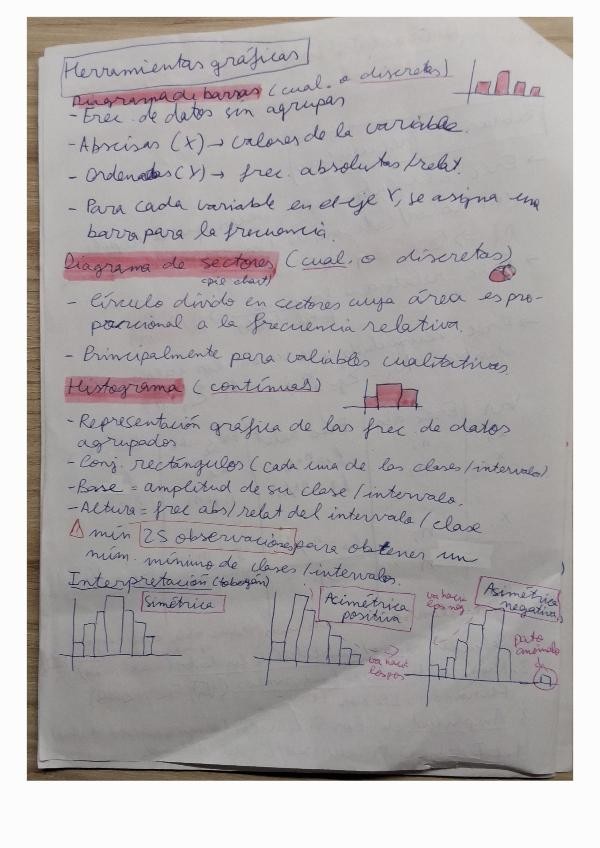 Herramientas gráficas
Diagrama de barras (cual. o discretas)
- Frec. de datos sin agrupar
- Abscisas (X) → valores de la variable.
- Ordenadas (Y) → frec. absolutas/relat.
- Para cada variable en el eje Y, se asigna una
barra para la frecuencia.
Diagrama de sectores (cual. o discretas)
(pie chart)
- Círculo divido en sectores cuya área es pro-
porcional a la frecuencia relativa.
- Principalmente para variables cualitativas
Histograma (contínuas)
- Representación gráfica de las frec de datos
agrupados
- Conj. rectángulos (cada una de las clases/intervalo)
- Base = amplitud de su clase/intervalo.
- Altura = frec abs/relat del intervalo/clase
⚠ mín 25 observaciones para obtener un
núm. mínimo de clases/intervalos.
Interpretación (tobogán)
Simétrica
Acimétrica
positiva
va hacia
los pos
va hacia
los neg
Asimétrica
negativa
dato
anómalo